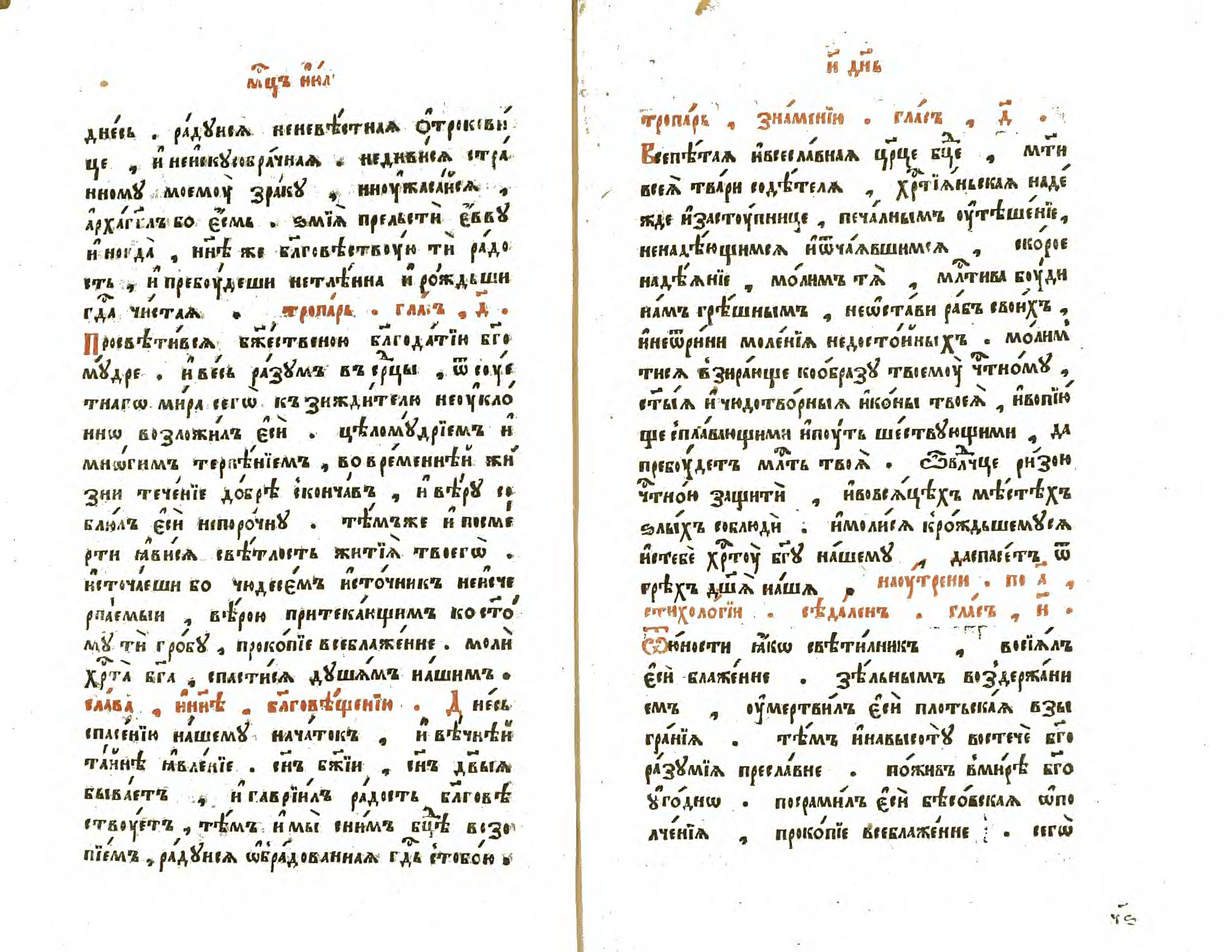 мц҃ъ їю́л
дне́сь . ра́дуисѧ неневѣ́стнаѧ Ѻ҆трокови́
це , и҆ неи҆скусобра́чнаѧ . недиви́сѧ стра́
нному моемоу̀ зра́ку , ниоу҆жаса́исѧ ,
а҆рха́гг҃лъ бо є҆́смь . ѕмїѧ̀ прельстѝ є҆́ввү
и҆ногда̀ , нн҃ѣ же бл҃говѣствоу́ю тѝ ра́до
сть , и҆ пребоу́деши нетлѣ́нна и҆ ро́ждьши
гдⷭ҇а чи́стаѧ . тропа́рь . гла́съ , д҃ .
Просвѣти́всѧ бж҃е́ственою бл҃года́тїю бг҃о
му́дре . и҆ весь ра́зумъ въ се́рдцы , ѿ соуе
тнагѡ ми́ра сегѡ̀ къ зижди́телю неоукло́
ннѡ возложи́лъ є҆сѝ . цѣломү́дрїемъ и҆
мнѡ́гимъ терпѣ́нїемъ , во вре́меннѣй жи́
зни тече́нїе до́брѣ сконча́въ , и҆ вѣ́ру со
блю́лъ є҆сѝ непоро́чну . тѣ́мъже и҆ по сме́
рти ꙗ҆ви́сѧ свѣ́тлость житїѧ̀ твоегѡ̀ .
и҆сточа́еши бо чюдесє́мъ и҆сто́чникъ неи҆сче
рпа́емыи , вѣ́рою притека́ющимъ ко ст҃о́
му тѝ гро́бу , проко́пїе всеблаже́нне . молѝ
хрⷭ҇та̀ бг҃а , спасти́сѧ душа́мъ на́шимъ .
сла́ва , и҆ нн҃ѣ . бл҃говѣ́щенїю . Дне́сь
спасе́нїю на́шему нача́токъ , и҆ вѣ́чнѣй
та́йнѣ ꙗ҆вле́нїе . сн҃ъ бж҃їи , сн҃ъ дв҃ыѧ
быва́етъ , и҆ гаврїи́лъ ра́дость бл҃говѣ
ствоу́етъ , тѣ́мъ и҆ мы̀ с ни́мъ бц҃ѣ возо
пїе́мъ , ра́дуисѧ ѡ҆бра́дованнаѧ гдⷭ҇ь с тобо́ю .
и҃ дн҃ь
тропа́рь , зна́менїю . гла́съ , д҃ .
Всепѣ́таѧ и҆ всесла́внаѧ цр҃це бц҃е , мт҃и
всеѧ̀ тва́ри содѣ́телѧ , хрⷭ҇тїѧ́ньскаѧ наде́
жде и҆ засту́пнице , печа́льнымъ оу҆тѣше́нїе ,
ненадѣ́ющимсѧ и҆ ѿча́ѧвшимсѧ , ско́рое
надѣ́ѧнїе , мо́лимъ тѧ̀ , млⷭ҇тива боу́ди
на́мъ грѣ́шнымъ , не ѡ҆ста́ви ра́бъ свои́хъ ,
и҆ не ѿри́ни моле́нїѧ недосто́йныхъ . мо́лим
тисѧ взира́юще ко о҆́бразу твоемоу̀ чтⷭ҇но́му ,
ст҃ы́ѧ и҆ чюдотво́рныѧ и҆ко́ны твоеѧ̀ , и҆ вопїю́
ще с пла́вающими и҆ поу́ть ше́ствующими , да
пребоу́детъ млⷭ҇ть твоѧ̀ . Ѽ влⷣчце ри́зою
чтⷭ҇но́ю защитѝ , и҆ во всѧ́цѣхъ мѣ́стѣхъ
ѕлы́хъ соблюдѝ . и҆ моли́сѧ к ро́ждьшемусѧ
и҆с тебѐ хрⷭ҇тоу̀ бг҃у на́шему , да спасе́тъ ѿ
грѣ́хъ дш҃ѧ̀ на́шѧ . на оу́трени . по а҃ ,
стихоло́гїи . сѣда́ленъ . гла́съ , и҃ .
Ѿ ю҆́ности ꙗ҆́кѡ свѣти́лникъ , восїѧ́лъ
є҆сѝ блаже́нне . зѣ́льнымъ воздержа́ни
емъ , оу҆мертви́лъ є҆сѝ пло́тьскаѧ взы
гра́нїѧ . тѣ́мъ и҆ на высоту̀ востечѐ бг҃о
ра́зумїѧ пресла́вне . по́живъ в ми́рѣ бг҃о
уго́днѡ . посрами́лъ є҆сѝ бѣсо́вскаѧ ѡ҆по
лче́нїѧ , проко́пїе всеблаже́нне . сегѡ̀